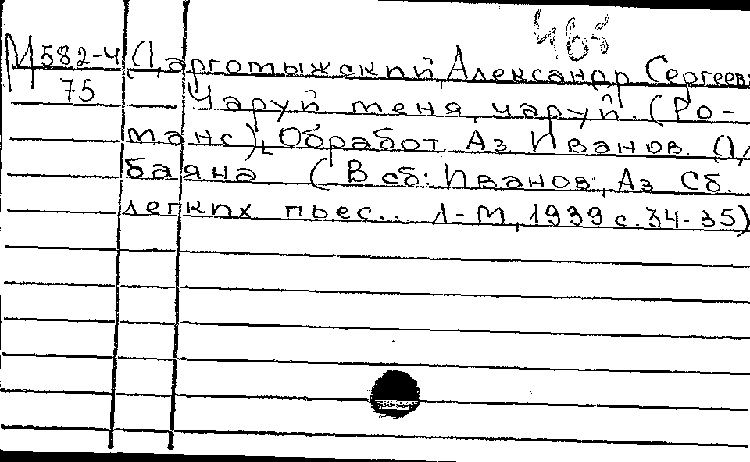 М 582-4 Даргомыжский, Александр Сергеев
75 Чаруй меня, чаруй. (Ро-
манс), Обработ Аз Иванов. Д/
баяна (В сб: Иванов, Аз Сб.
легких пьес.. Л-М, 1939 с. 34-35)